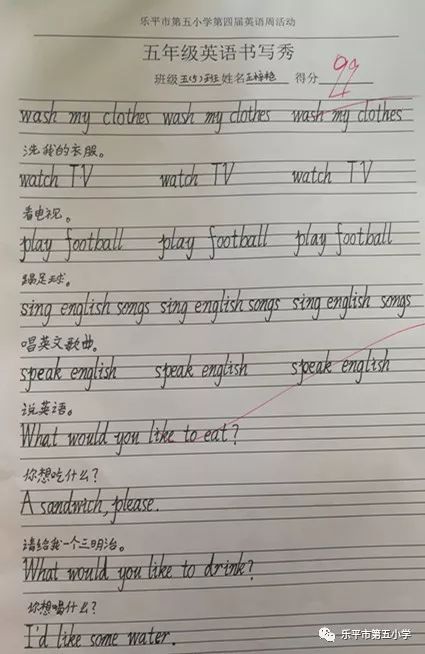 乐平市第五小学第四届英语周活动
五年级英语书写秀
班级 五(5)班 姓名 得分 99
wash my clothes wash my clothes wash my clothes
洗我的衣服。
watch TV watch TV watch TV
看电视。
play football play football play football
踢足球。
sing english songs sing english songs sing english songs
唱英文歌曲。
speak english speak english speak english
说英语。
What would you like to eat?
你想吃什么?
A sandwich, please.
请给我一个三明治。
What would you like to drink?
你想喝什么?
I'd like some water.
乐平市第五小学